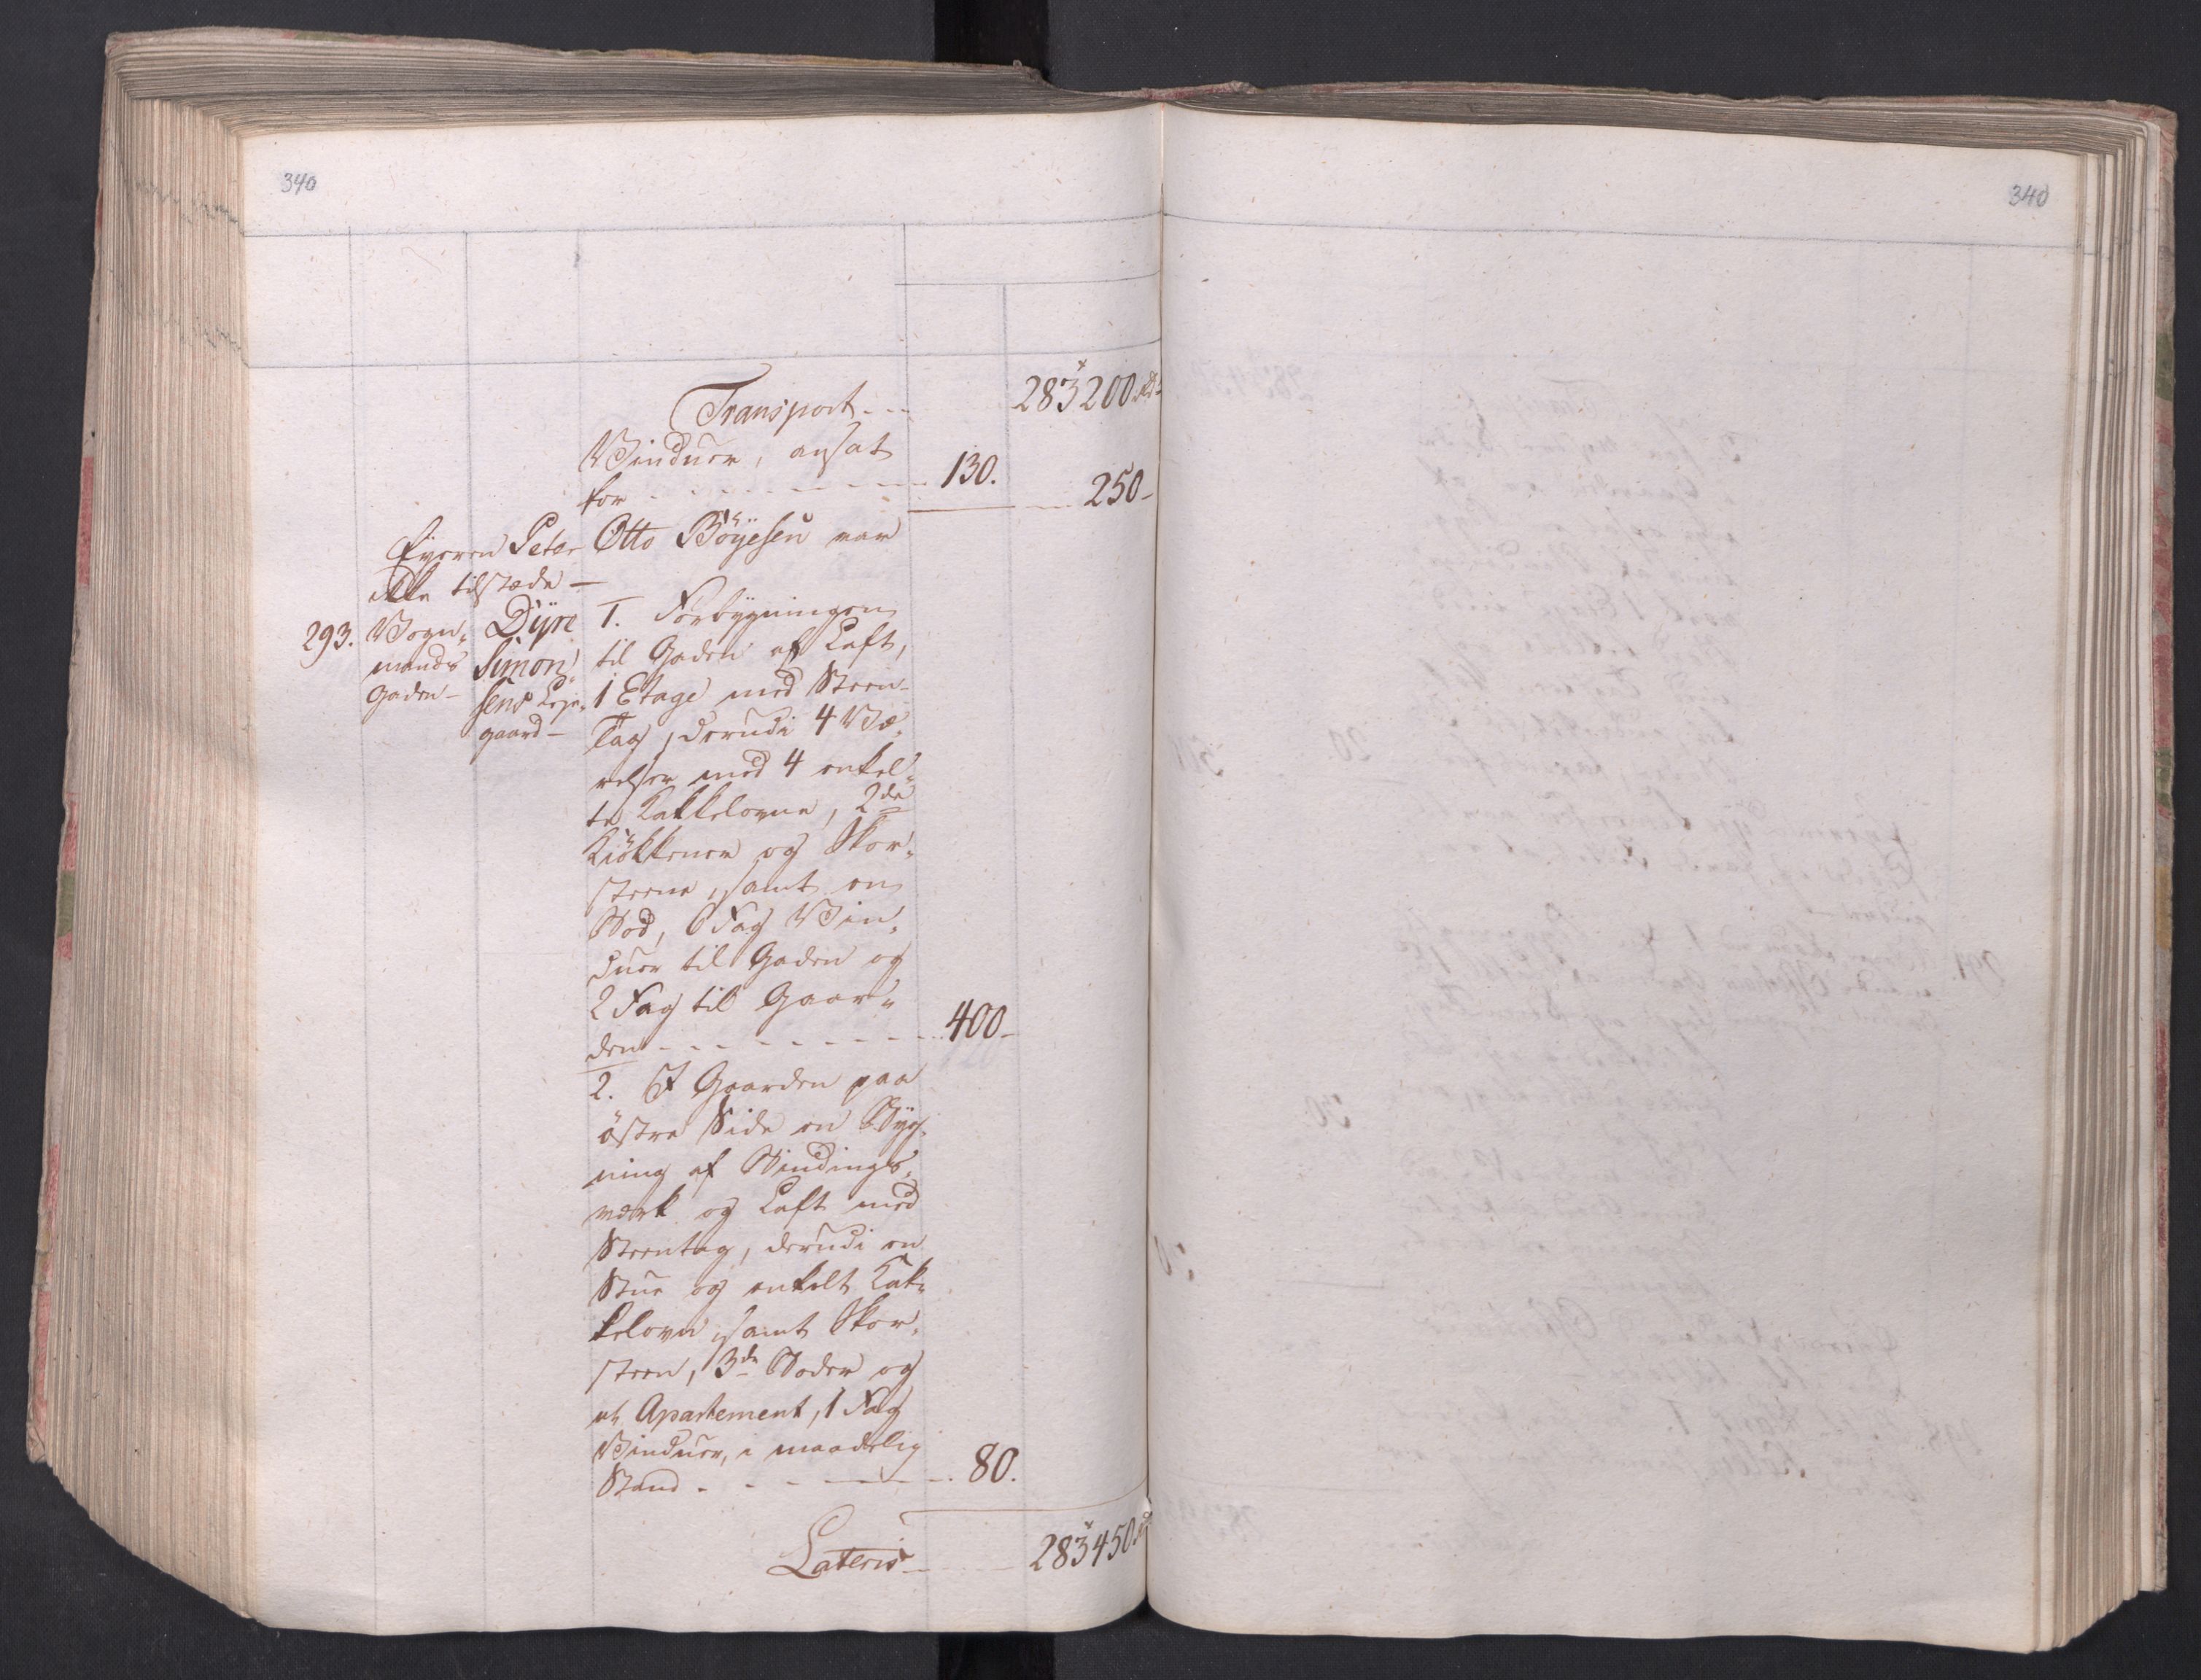 340
340
Transport - - - 283200 Rd
Vinduer, ansat
for - - - - - - - - 130.
250 -
Eyeren Peter Otto Böyesen var
ikke tilstæde -
293. Vogn-
mands
gaden -
Dyre
Simon-
sens Leje-
gaard -
1. Forbygningen
til Gaden af Laft,
1 Etage med Steen-
Tag, derudi 4 Væ-
relser med 4 enkel-
te Kakkelovne, 2de
Kiökkener og Skor-
steene, samt en
Bod, 6 Fag Vin-
duer til Gaden og
2 Fag til Gaar-
den - - - - - - - - 400 -
2. I Gaarden paa
östre Side en Byg-
ning af Bindings-
værk og Laft med
Steentag, derudi en
Stue og enkelt Kak-
kelovn, samt Skor-
steen, 3de Boder og
et Apartement, 1 Fag
Vinduer, i maadelig
Stand - - - - - - 80.
Lateris - - - 283450